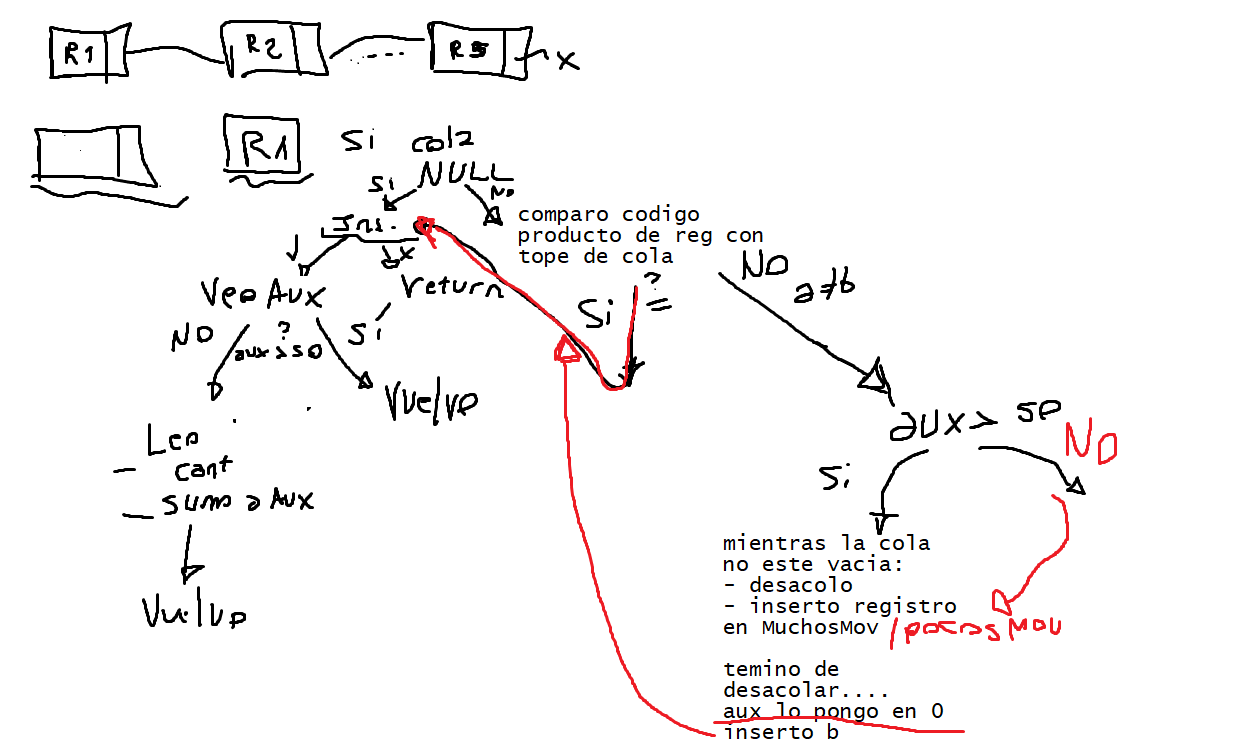 R1 R2 ..... R5 x
R1
Si cola
NULL
Si NO
Ins.
comparo codigo
producto de reg con
tope de cola
x
return
Veo Aux
NO ? Si
aux > 50
Vuelvo
? =
Si
NO
a≠b
Leo
- cant
- sumo a Aux
Vuelvo
aux > 50
NO
Si
mientras la cola
no este vacia:
- desacolo
- inserto registro
en MuchosMov /pocosMov
temino de
desacolar....
aux lo pongo en 0
inserto b